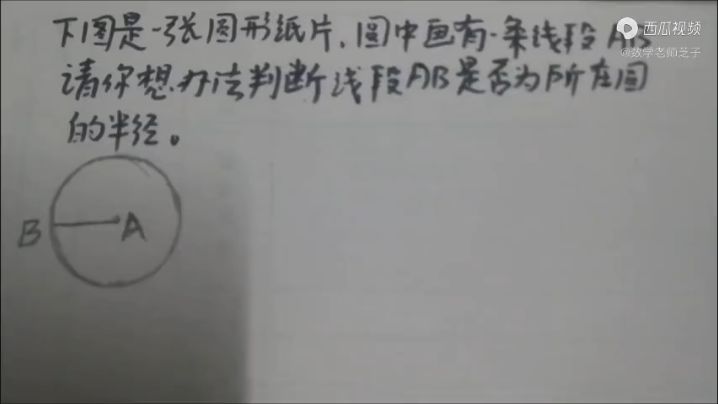 下图是一张圆形纸片,圆中画有一条线段AB
请你想办法判断线段AB是否为所在圆
的半径。
B
A
西瓜视频
@数学老师芝子